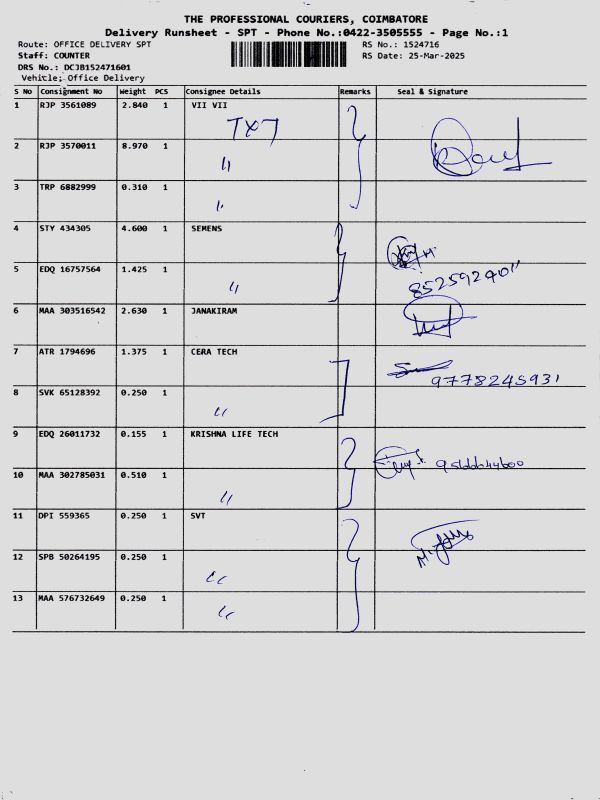 THE PROFESSIONAL COURIERS, COIMBATORE
Delivery Runsheet - SPT - Phone No.:0422-3505555 - Page No.:1
Route: OFFICE DELIVERY SPT RS No.: 1524716
Staff: COUNTER RS Date: 25-Mar-2025
DRS No.: DCJB152471601
Vehicle; Office Delivery
S No Consignment No Weight PCS Consignee Details Remarks Seal & Signature
1 RJP 3561089 2.840 1 VII VII
TXJ
2 RJP 3570011 8.970 1
"
3 TRP 6882999 0.310 1
"
4 STY 434305 4.600 1 SEMENS
5 EDQ 16757564 1.425 1
" 8525924011
6 MAA 303516542 2.630 1 JANAKIRAM
7 ATR 1794696 1.375 1 CERA TECH
9778245931
8 SVK 65128392 0.250 1
"
9 EDQ 26011732 0.155 1 KRISHNA LIFE TECH
10 MAA 302785031 0.510 1
"
11 DPI 559365 0.250 1 SVT
12 SPB 50264195 0.250 1
"
13 MAA 576732649 0.250 1
"